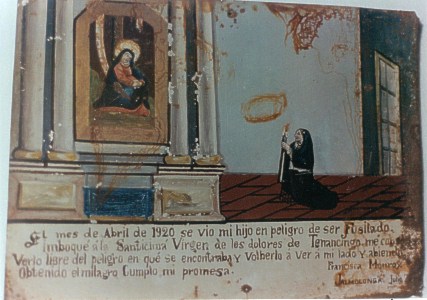 El mes de Abril de 1920 se vio mi hijo en peligro de ser Fusilado
Imboque á la Santichma Virgen de los dolores de Tenancingo, me
Verlo libre del peligro en que se encontraba y Volberlo á Ver á mi lado y abiendo
Obtenido el milagro Cumplo, mi promesa. Francisca